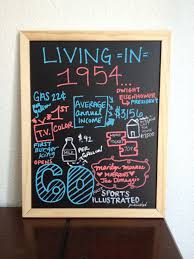 LIVING =IN=
1954...
GAS 22¢
DWIGHT
EISENHOWER
PRESIDENT
1ST
COLOR
T.V.
AVERAGE
annual
INCOME
FIRST
BURGER
KING
OPENS
MILK
marilyn
monroe
MARRIES
Joe Dimaggio
60
SPORTS
ILLUSTRATED